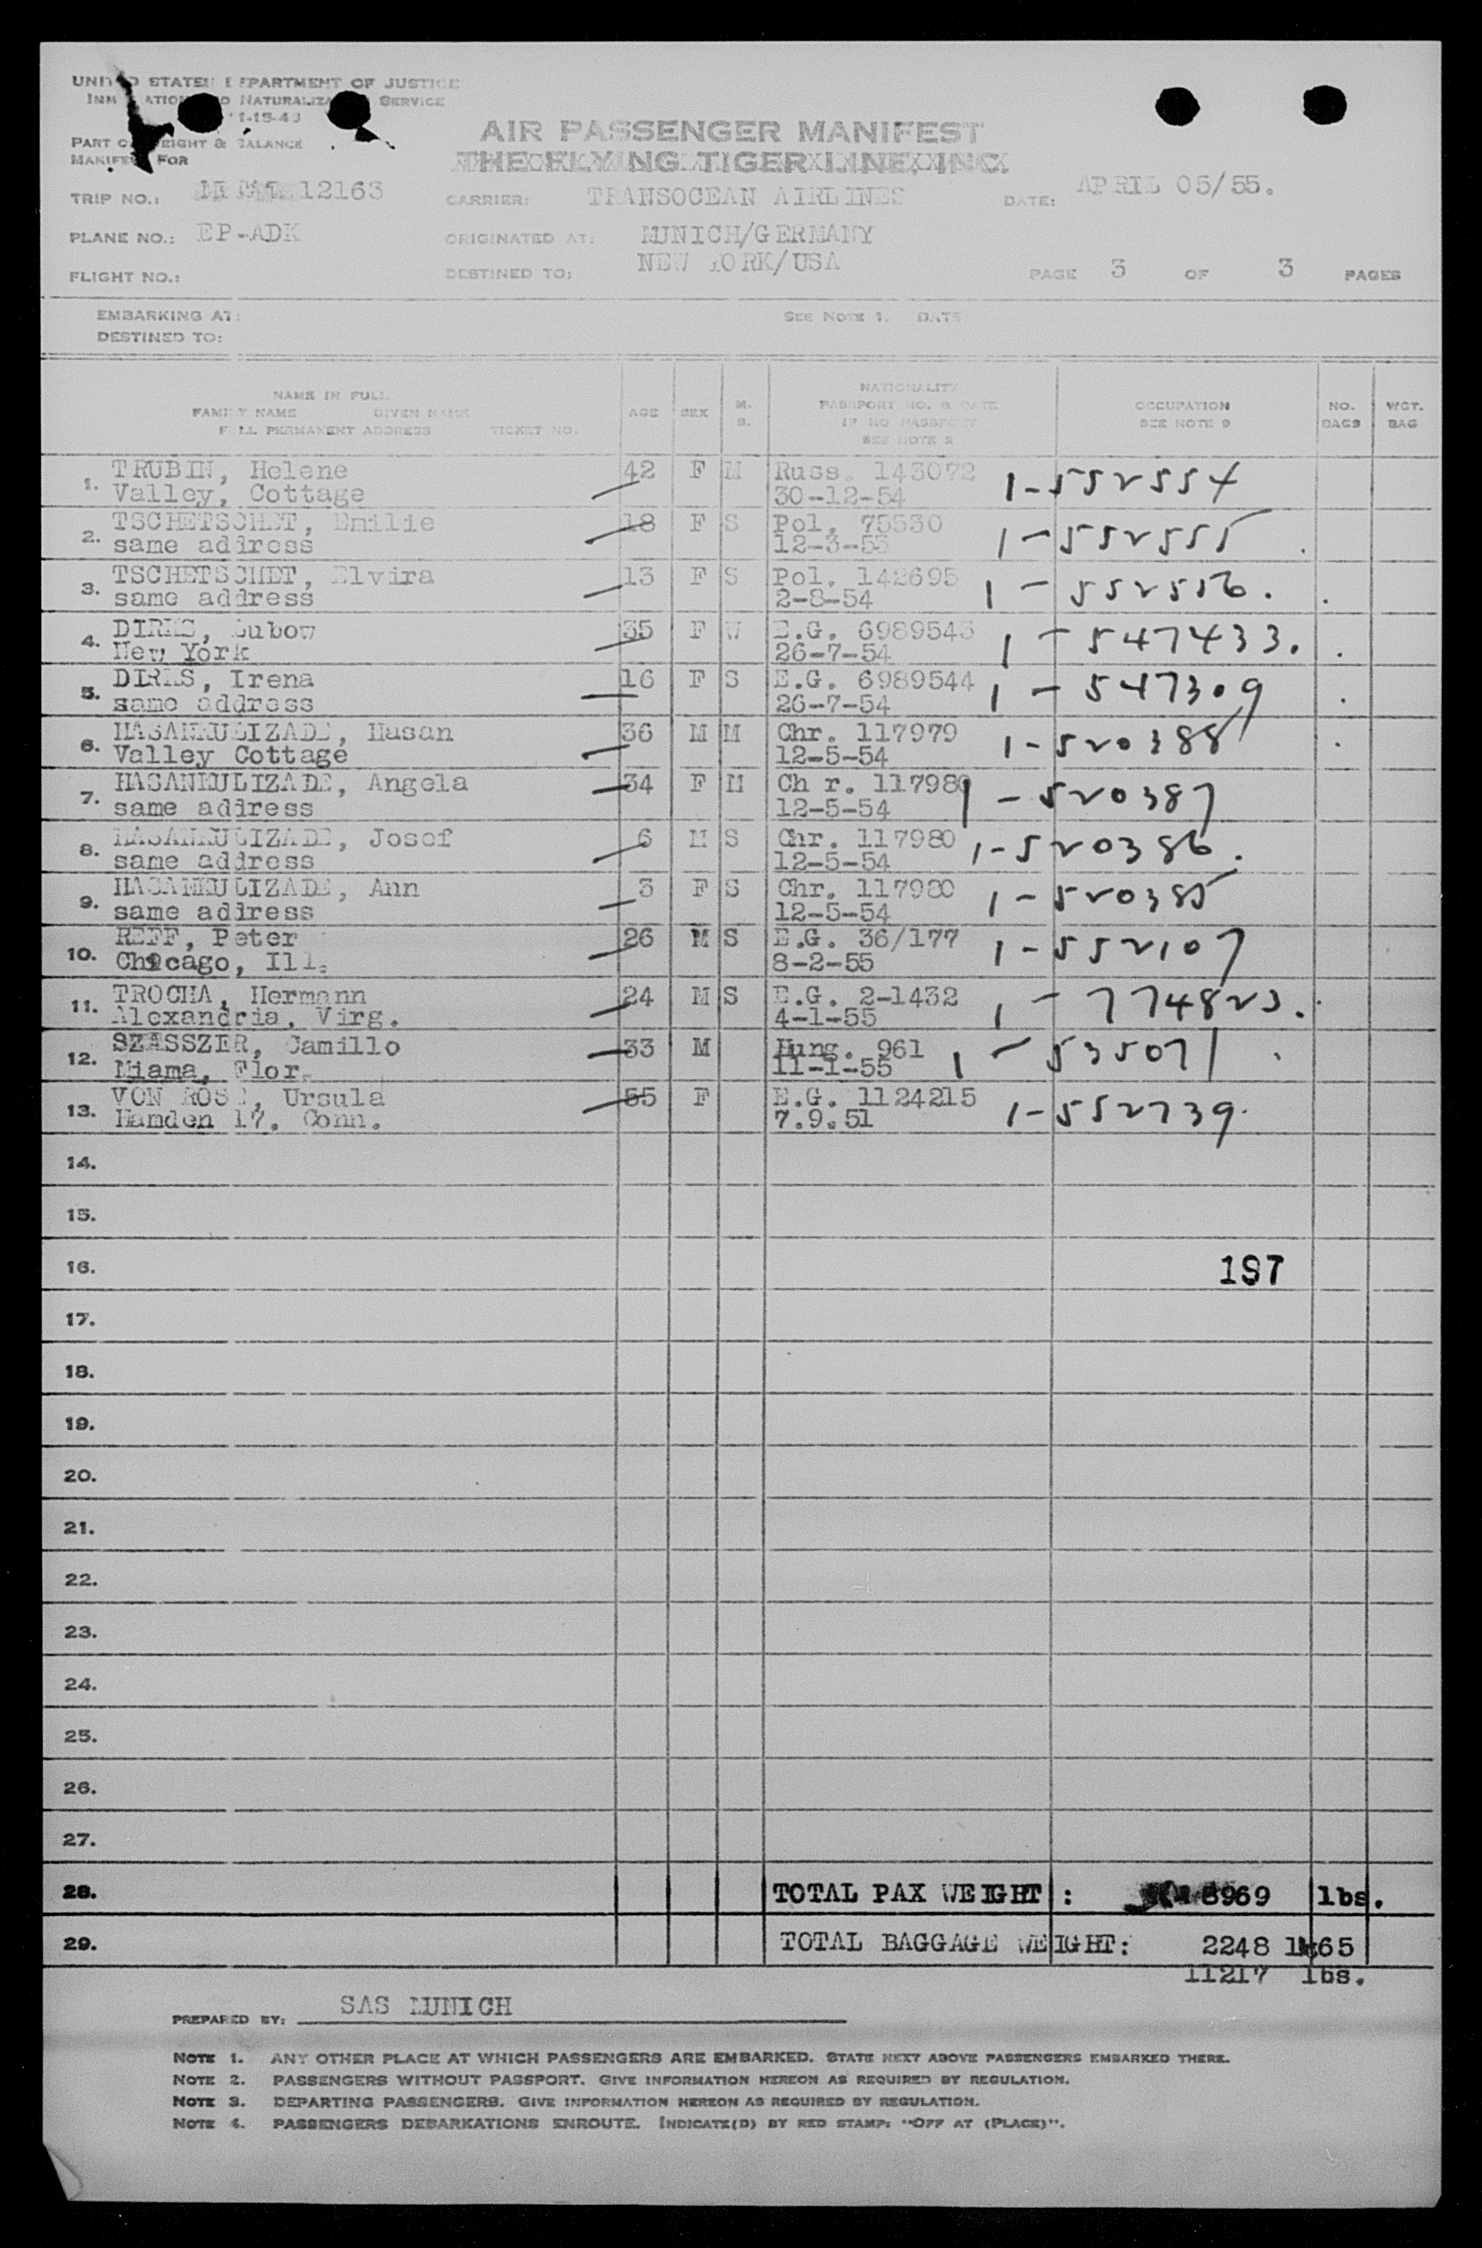 UNITED STATES DEPARTMENT OF JUSTICE
IMMIGRATION AND NATURALIZATION SERVICE
PART OF WEIGHT & BALANCE
MANIFEST FOR
AIR PASSENGER MANIFEST
THE FLYING TIGER LINE INC.
TRIP NO.: 12163 CARRIER: TRANSOCEAN AIRLINES DATE: APRIL 05/55.
PLANE NO.: EP-ADK ORIGINATED AT: MUNICH/GERMANY
FLIGHT NO.: DESTINED TO: NEW YORK/USA PAGE 3 OF 3 PAGES
EMBARKING AT: SEE NOTE 1. DATE
DESTINED TO:
NAME IN FULL
FAMILY NAME GIVEN NAME
FULL PERMANENT ADDRESS TICKET NO.
AGE SEX M. S.
NATIONALITY
PASSPORT NO. & DATE
IF NO PASSPORT
SEE NOTE 2
OCCUPATION
SEE NOTE 9
NO. BAGS
WGT. BAG
1. TRUBIN, Helene 42 F M Russ. 143072 1-552554
Valley, Cottage 30-12-54
2. TSCHETSCHET, Emilie 18 F S Pol. 75530 1-552555
same address 12-3-53
3. TSCHETSCHET, Elvira 13 F S Pol. 142695 1-552556.
same address 2-8-54
4. DIRKS, Lubow 35 F W E.G. 6989543 1-547433.
New York 26-7-54
5. DIRKS, Irena 16 F S E.G. 6989544 1-547309
same address 26-7-54
6. HASANKULIZADE, Hasan 36 M M Chr. 117979 1-520388
Valley Cottage 12-5-54
7. HASANKULIZADE, Angela 34 F M Ch r. 117980 1-520387
same address 12-5-54
8. HASANKULIZADE, Josef 6 M S Chr. 117980 1-520386.
same address 12-5-54
9. HASANKULIZADE, Ann 3 F S Chr. 117980 1-520385
same address 12-5-54
10. REFF, Peter 26 M S E.G. 36/177 1-552107
Chicago, Ill. 8-2-55
11. TROCHA, Hermann 24 M S E.G. 2-1432 1-774823.
Alexandria, Virg. 4-1-55
12. SZASSZER, Camillo 33 M Hung. 961 1-535071
Miama, Flor. 11-1-55
13. VON ROSE, Ursula 55 F E.G. 1124215 1-552739.
Hamden 17. Conn. 7.9.51
14.
15.
16. 197
17.
18.
19.
20.
21.
22.
23.
24.
25.
26.
27.
28. TOTAL PAX WEIGHT : 8969 lbs.
29. TOTAL BAGGAGE WEIGHT: 2248 65
11217 lbs.
PREPARED BY: SAS MUNICH
NOTE 1. ANY OTHER PLACE AT WHICH PASSENGERS ARE EMBARKED. STATE NEXT ABOVE PASSENGERS EMBARKED THERE.
NOTE 2. PASSENGERS WITHOUT PASSPORT. GIVE INFORMATION HEREON AS REQUIRED BY REGULATION.
NOTE 3. DEPARTING PASSENGERS. GIVE INFORMATION HEREON AS REQUIRED BY REGULATION.
NOTE 4. PASSENGERS DEBARKATIONS ENROUTE. INDICATE(D) BY RED STAMP: "OFF AT (PLACE)".